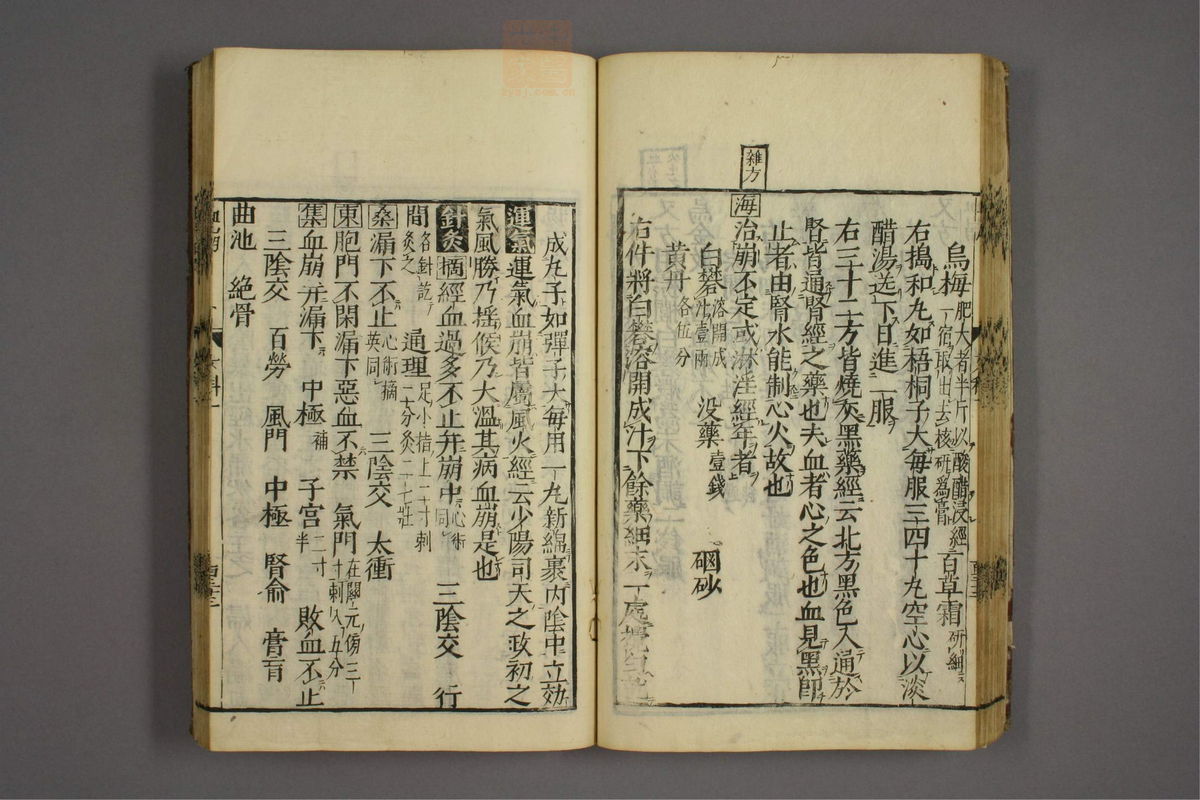 雜方
烏梅肥大者半斤以酸醋浸經一宿取出去核研爲膏 百草霜研細
右搗和丸如梧桐子大每服三四十丸空心以淡
醋湯送下日進二服
右三十二方皆燒灰黑藥經云北方黑色入通於
腎皆通腎經之藥也夫血者心之色也血見黑即
止者由腎水能制心火故也
海治崩不定或淋瀝經年者
白礬溶開成汁壹兩 沒藥壹錢 硇砂
黃丹各伍分
右件將白礬溶開成汁下餘藥細末一處
成丸子如彈子大每用一丸新綿裹內陰中立効
運氣運氣血崩皆屬風火經云少陽司天之政初之
氣風勝乃搖候乃大溫其病血崩是也
針灸摘經血過多不止幷崩中心術同 三陰交 行
間各針訖灸之 通理足小指上二寸刺二分灸二七壯
桑漏下不止心術摘英同 三陰交 太衝
東胞門不閉漏下惡血不禁 氣門在關元傍三寸刺入五分
集血崩幷漏下 中極補 子宮二寸半 敗血不止
三陰交 百勞 風門 中極 腎俞 膏肓
曲池 絕骨